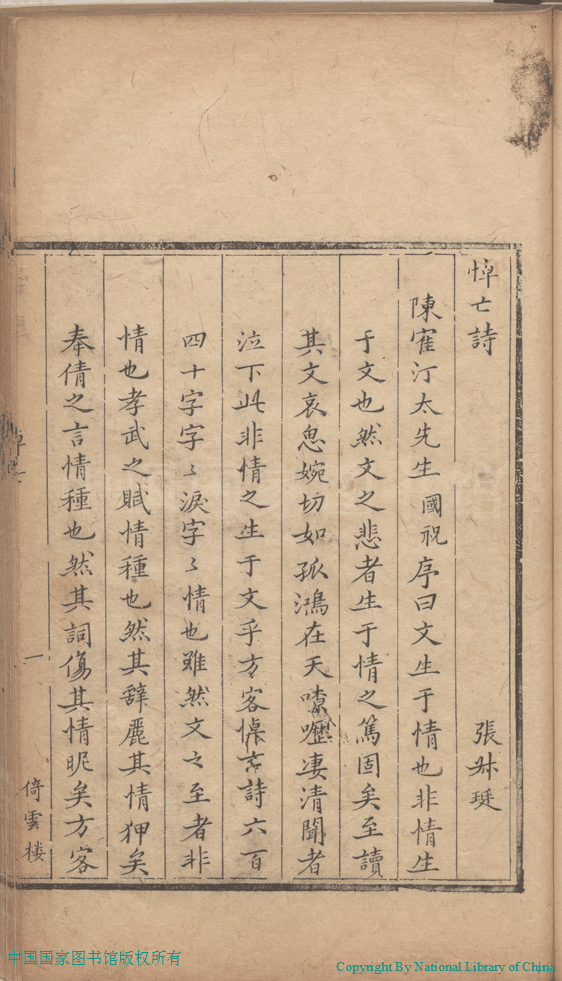 悼亡詩 張昇珽
陳寉汀太先生國祝序曰文生于情也非情生
于文也然文之悲者生于情之篤固矣至讀
其文哀思婉切如孤鴻在天嘹嚦凄清聞者
泣下此非情之生于文乎方客悼言詩六百
四十字字〻淚字〻情也雖然文之至者非
情也孝武之賦情種也然其辭麗其情狎矣
奉倩之言情種也然其詞傷其情昵矣方客
一
倚雲楼
中国国家图书馆版权所有
Copyright By National Library of China